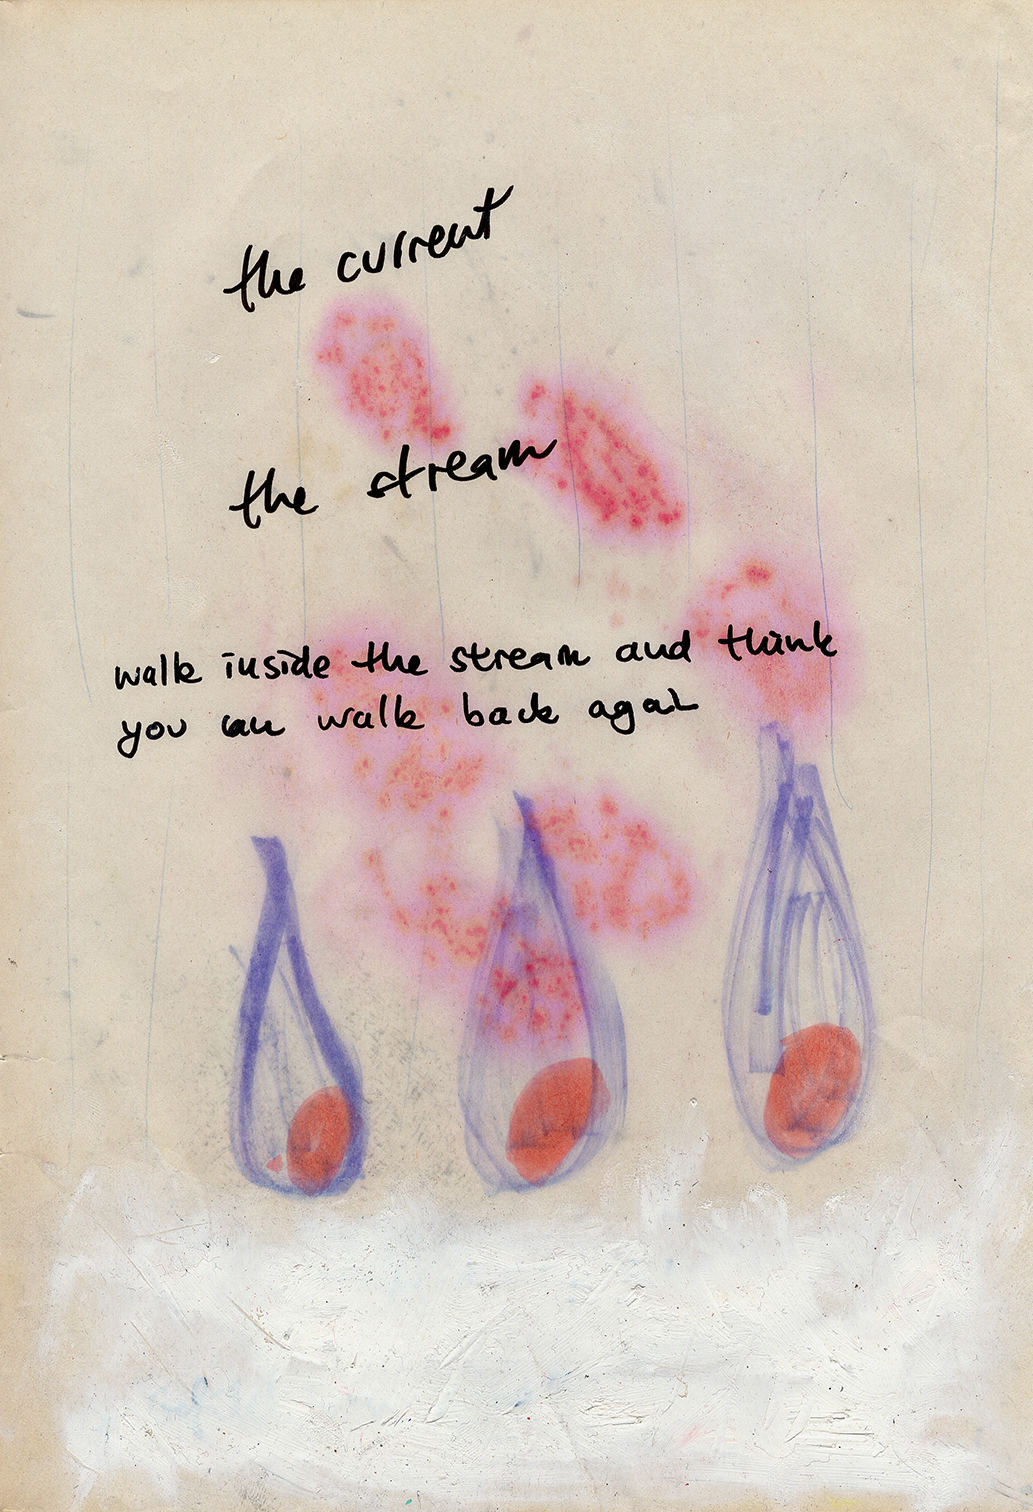 the current
the stream
walk inside the stream and think
you can walk back again